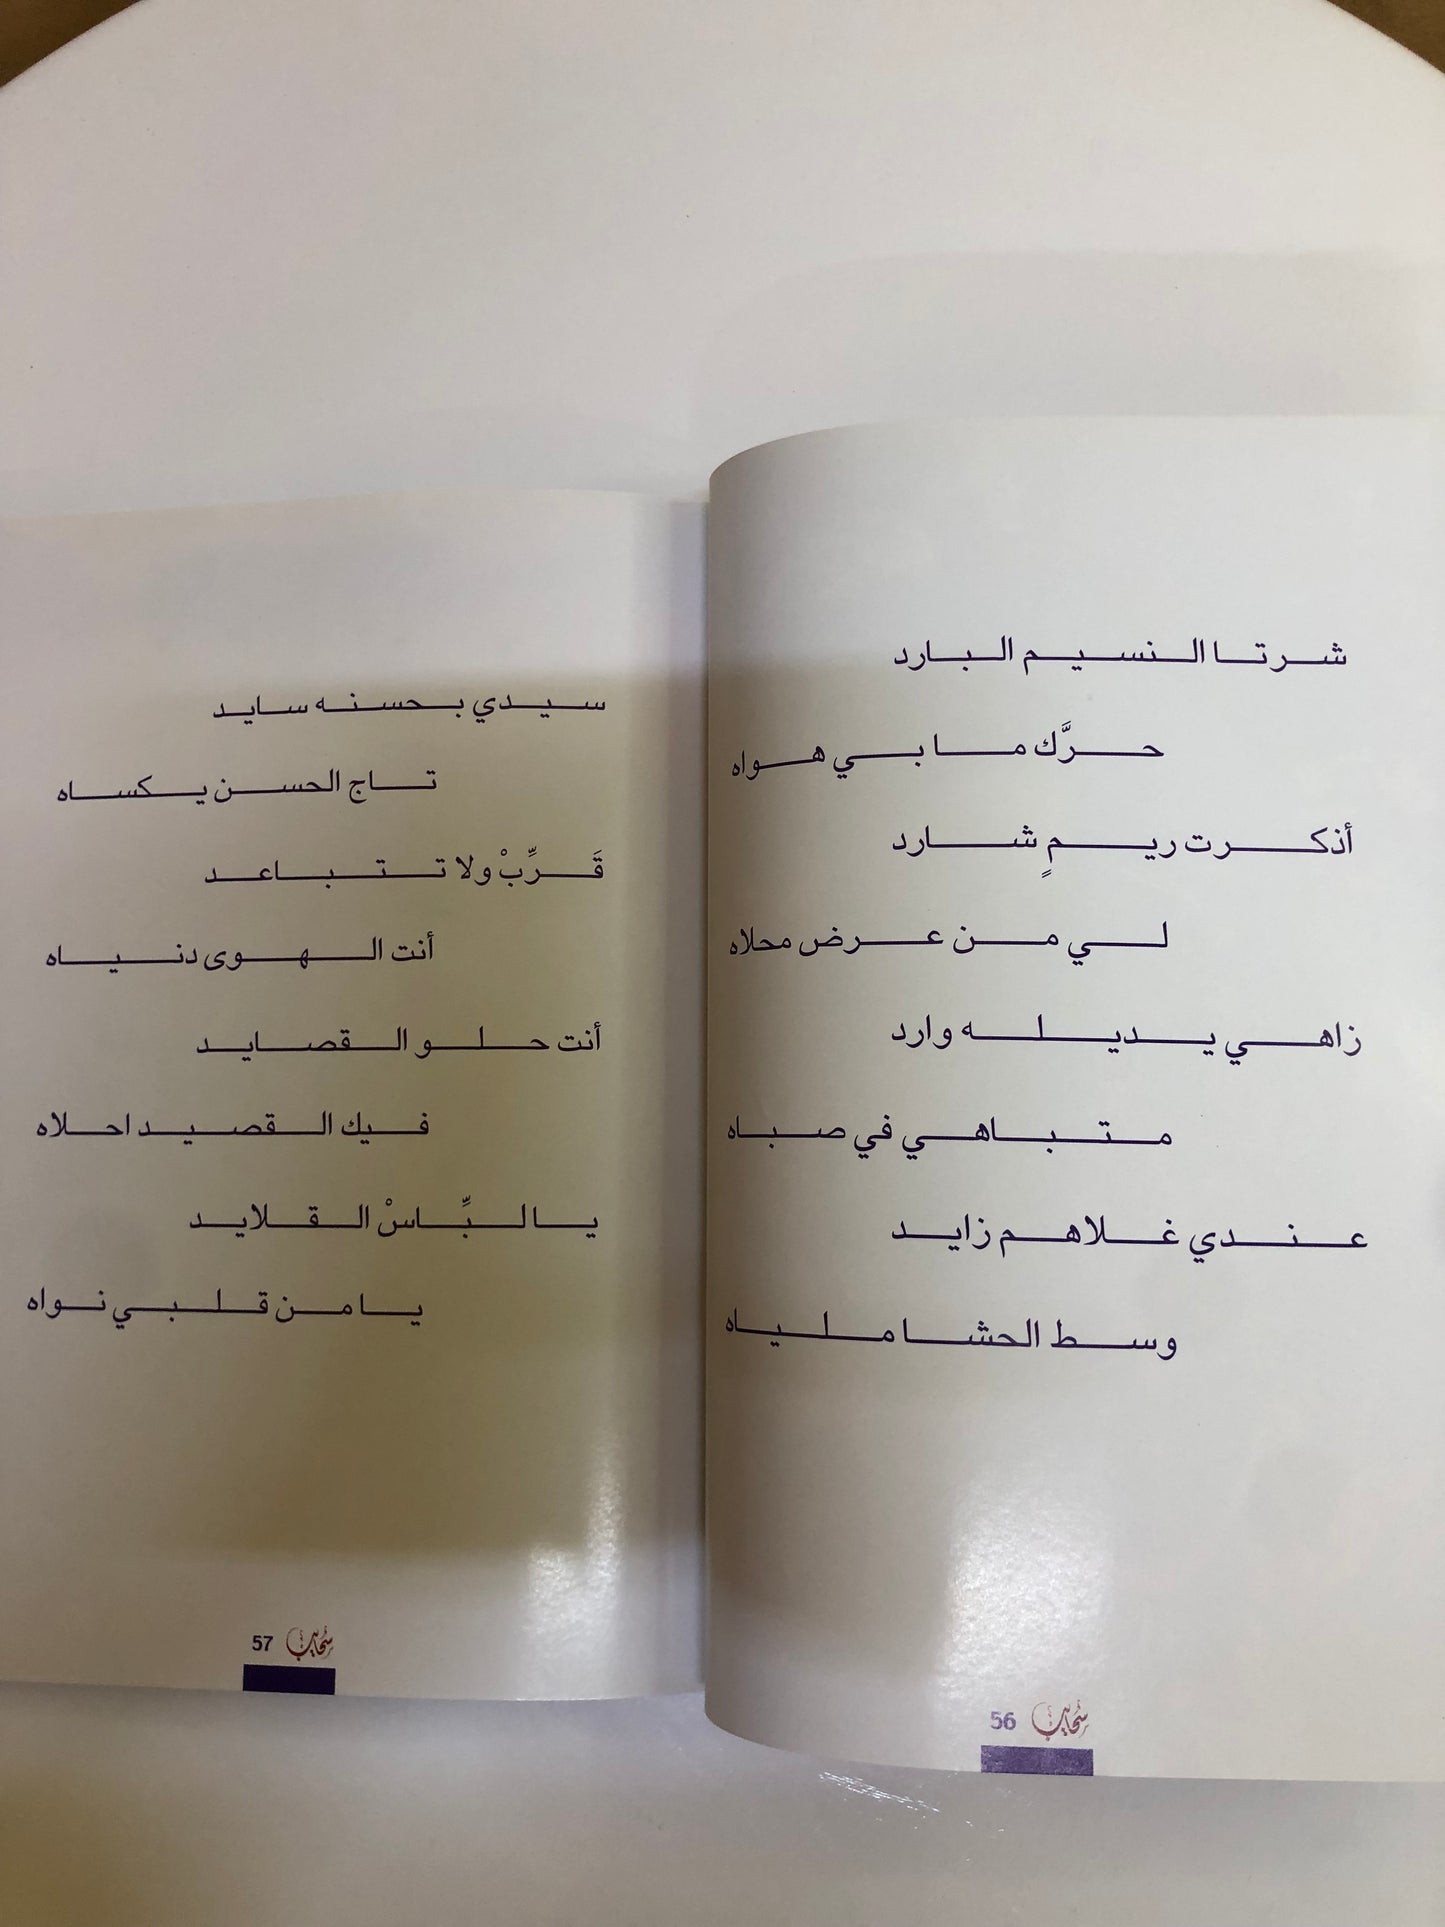 شرتا النسيم البارد
حرَّك ما بي هواه
أذكرت ريمٍ شارد
لي من عرض محلاه
زاهي يديله وارد
متباهي في صباه
عندي غلاهم زايد
وسط الحشا ملياه
56 سحايب
سيدي بحسنه سايد
تاج الحسن يكساه
قَرِّبْ ولا تتباعد
أنت الهوى دنياه
أنت حلو القصايد
فيك القصيد احلاه
يا لبِّاسْ القلايد
يا من قلبي نواه
57 سحايب